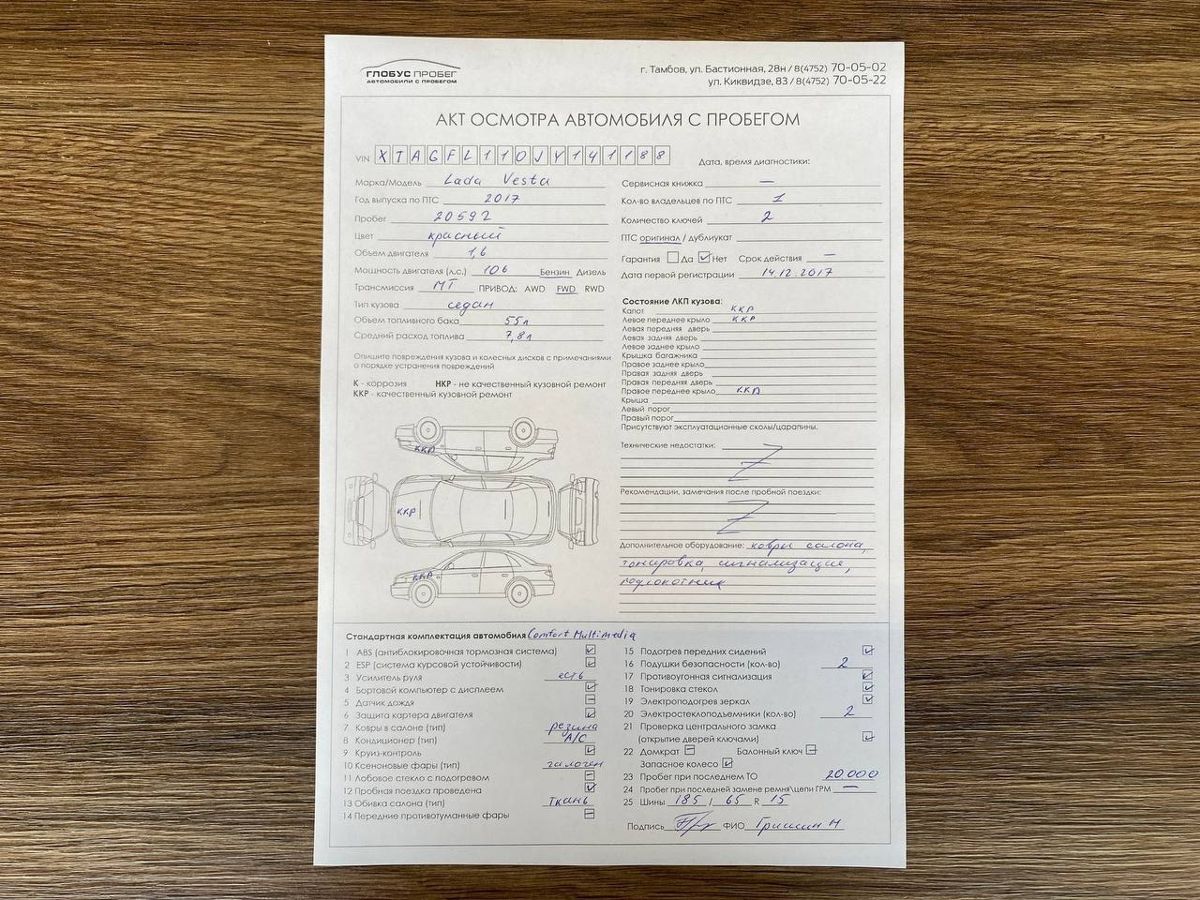 ГЛОБУС ПРОБЕГ
АВТОМОБИЛИ С ПРОБЕГОМ
г. Тамбов, ул. Бастионная, 28н / 8(4752) 70-05-02
ул. Киквидзе, 83 / 8(4752) 70-05-22
АКТ ОСМОТРА АВТОМОБИЛЯ С ПРОБЕГОМ
VIN XTAGFL110JY141188
Дата, время диагностики:
Марка/Модель Lada Vesta
Год выпуска по ПТС 2017
Пробег 20592
Цвет красный
Объем двигателя 1,6
Мощность двигателя (л.с.) 106 Бензин Дизель
Трансмиссия МТ ПРИВОД: AWD FWD RWD
Тип кузова седан
Объем топливного бака 55л
Средний расход топлива 7,8л
Опишите повреждения кузова и колесных дисков с примечаниями
о порядке устранения повреждений
К - коррозия НКР - не качественный кузовной ремонт
ККР - качественный кузовной ремонт
ККР
ККР
ККР
Сервисная книжка —
Кол-во владельцев по ПТС 1
Количество ключей 2
ПТС оригинал / дубликат
Гарантия Да Нет Срок действия —
Дата первой регистрации 14.12.2017
Состояние ЛКП кузова:
Капот ККР
Левое переднее крыло ККР
Левая передняя дверь
Левая задняя дверь
Левое заднее крыло
Крышка багажника
Правое заднее крыло
Правая задняя дверь
Правая передняя дверь
Правое переднее крыло ККР
Крыша
Левый порог
Правый порог
Присутствуют эксплуатационные сколы/царапины.
Технические недостатки:
Рекомендации, замечания после пробной поездки:
Дополнительное оборудование: ковры салона,
тонировка, сигнализация,
подлокотник
Стандартная комплектация автомобиля Comfort Multimedia
1 ABS (антиблокировочная тормозная система)
2 ESP (система курсовой устойчивости)
3 Усилитель руля есть
4 Бортовой компьютер с дисплеем
5 Датчик дождя
6 Защита картера двигателя
7 Ковры в салоне (тип) резина
8 Кондиционер (тип) A/C
9 Круиз-контроль
10 Ксеноновые фары (тип) галоген
11 Лобовое стекло с подогревом
12 Пробная поездка проведена
13 Обивка салона (тип) ткань
14 Передние противотуманные фары
15 Подогрев передних сидений
16 Подушки безопасности (кол-во) 2
17 Противоугонная сигнализация
18 Тонировка стекол
19 Электроподогрев зеркал
20 Электростеклоподъемники (кол-во) 2
21 Проверка центрального замка
(открытие дверей ключами)
22 Домкрат Балонный ключ
Запасное колесо
23 Пробег при последнем ТО 20000
24 Пробег при последней замене ремня\цепи ГРМ —
25 Шины 185 / 65 R 15
Подпись ФИО Гришин Н